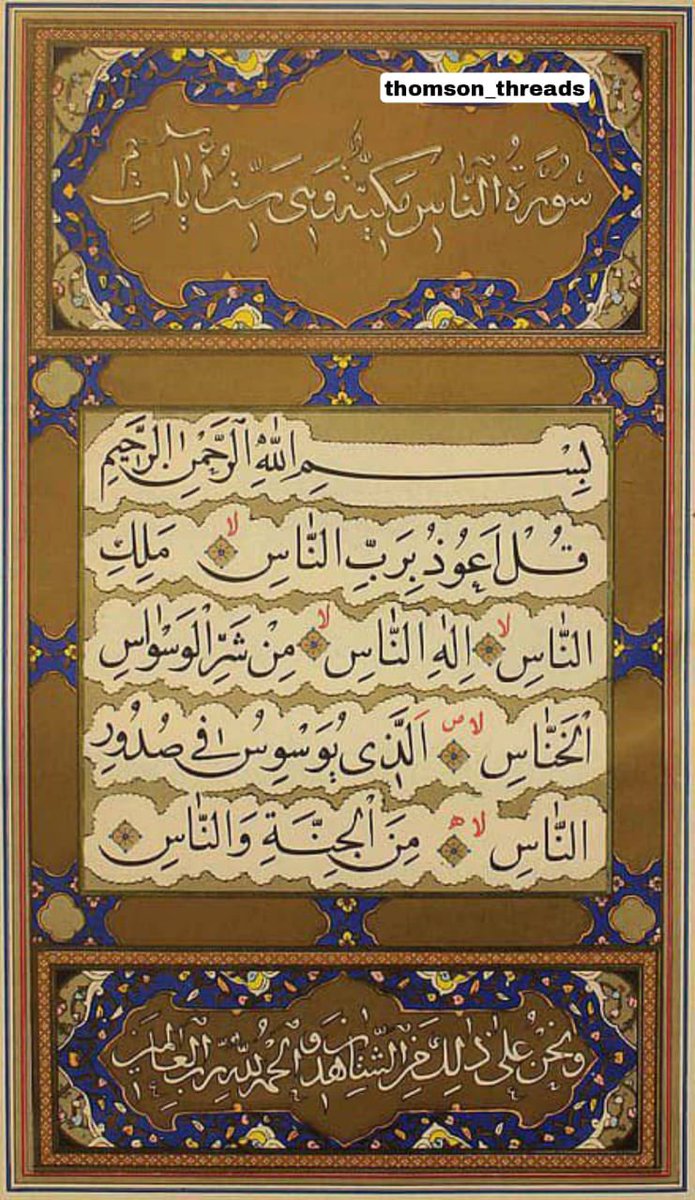 thomson_threads
سُورَةُ النَّاسِ مَكِّيَّةٌ وَهِيَ سِتُّ أٰيَاتٍ
بِسْمِ اللّٰهِ الرَّحْمٰنِ الرَّحِيمِ
قُلْ اَعُوذُ بِرَبِّ النَّاسِ ۙ مَلِكِ
النَّاسِ ۙ اِلٰهِ النَّاسِ ۙ مِنْ شَرِّ الْوَسْوَاسِ
الْخَنَّاسِ ۙ ص اَلَّذِى يُوَسْوِسُ فِى صُدُورِ
النَّاسِ ۙ ه مِنَ الْجِنَّةِ وَالنَّاسِ
وَنَحْنُ عَلٰى ذٰلِكَ مِنَ الشَّاهِدِينَ وَالْحَمْدُ لِلّٰهِ رَبِّ الْعَالَمِينَ